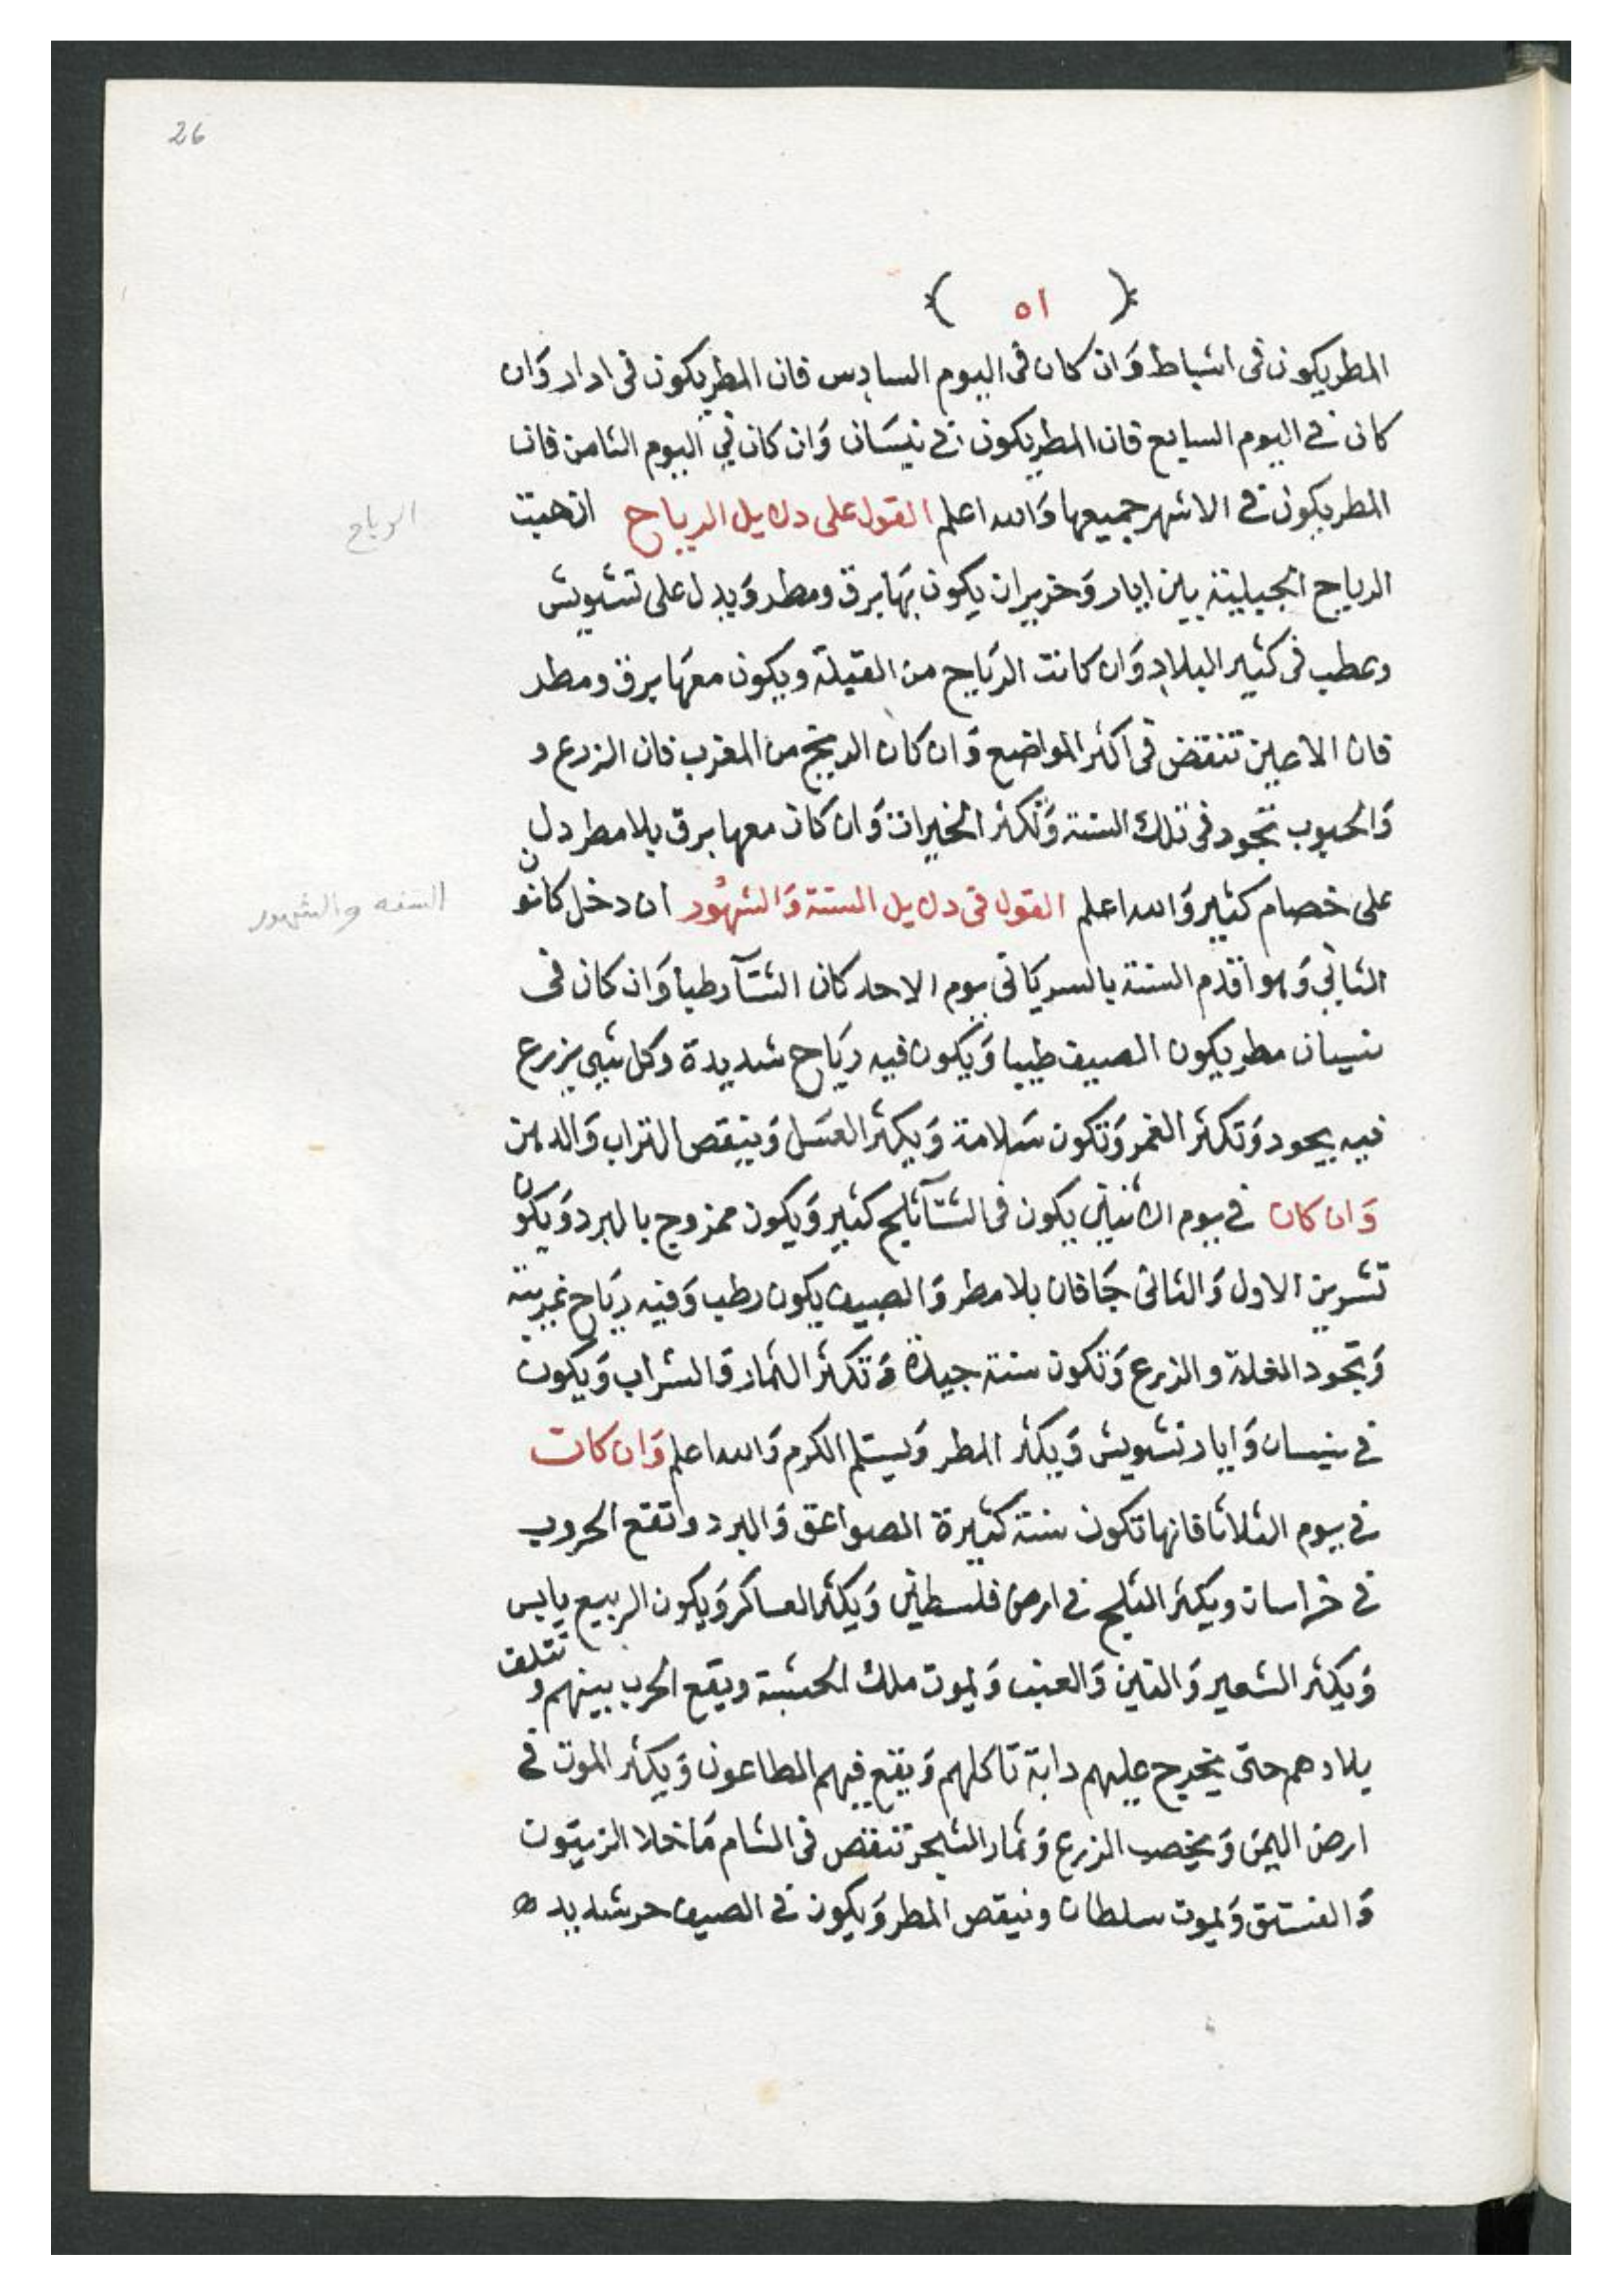 26
( ٥١ )
المطر يكون فى اشباط وَان كان فى اليوم السادس فان المطر يكون فى ادار وَان
كان فى اليوم السابع فان المطر يكون فى نيسَان وَان كان فى اليوم الثامن فان
المطر يكون فى الاشهر جميعها وَالله اعلم القول على دلايل الرياح ان هبت
الرياح
الرياح الجبلية بين ايار وَحزيران يكون بهَا برق ومطر وَيدل على تشويش
وعطب فى كثير البلاد وَان كانت الرَياح من القبلة ويكون معهَا برق ومطر
فان الاعين تنقض فى اكثر المواضع وَان كان الريح من المغرب فان الزرع و
وَالحبوب تجود فى تلك السنة وَتكثر الخيرات وَان كان معها برق بلا مطر دل
على خصام كثير وَالله اعلم القول فى دلايل السنة وَالشهُور ان دخل كانون
السنه والشهور
الثانى وَهو اقدم السنة بالسريَانى يوم الاحد كان الشتآ رطبا وَان كان فى
نيسان مطر يكون الصيف طيبا وَيكون فيه ريَاح شديدة وكل شيى يزرع
فيه يجود وَتكثر الغمر وَتكون سَلامة وَيكثر العسَل وَينقص التراب وَالدهن
وَان كان فى يوم الاثنين يكون فى الشتآ ثلج كثير وَيكون ممزوج بالبرد وَيكون
تشرين الاول وَالثانى جَافان بلا مطر وَالصيف يكون رطب وَفيه ريَاح غربية
وَتجود الغلة والزرع وَتكون سنة جيدة وَتكثر الثمار وَالشراب وَيكون
فى نيسان وَايار تشويش وَيكثر المطر وَيسلم الكرم وَالله اعلم وَان كان
فى يوم الثلاثا فانها تكون سنة كثيرة الصواعق وَالبرد واتقع الحروب
فى خراسان ويكثر الثلج فى ارض فلسطين وَيكثر العساكر وَيكون الربيع يابس
وَيكثر الشعير وَالتين وَالعنب وَيموت ملك الحبشة ويقع الحرب بينهم و تتلف
بلادهم حتى يخرج عليهم دابة تاكلهم وَيقع فيهم الطاعون وَيكثر الموت فى
ارض اليمَن وَيخصب الزرع وَثمار الشجر تنقص فى الشام مَا خلا الزيتون
وَالفستق وَيموت سلطان وينقص المطر وَيكون فى الصيف حر شديد